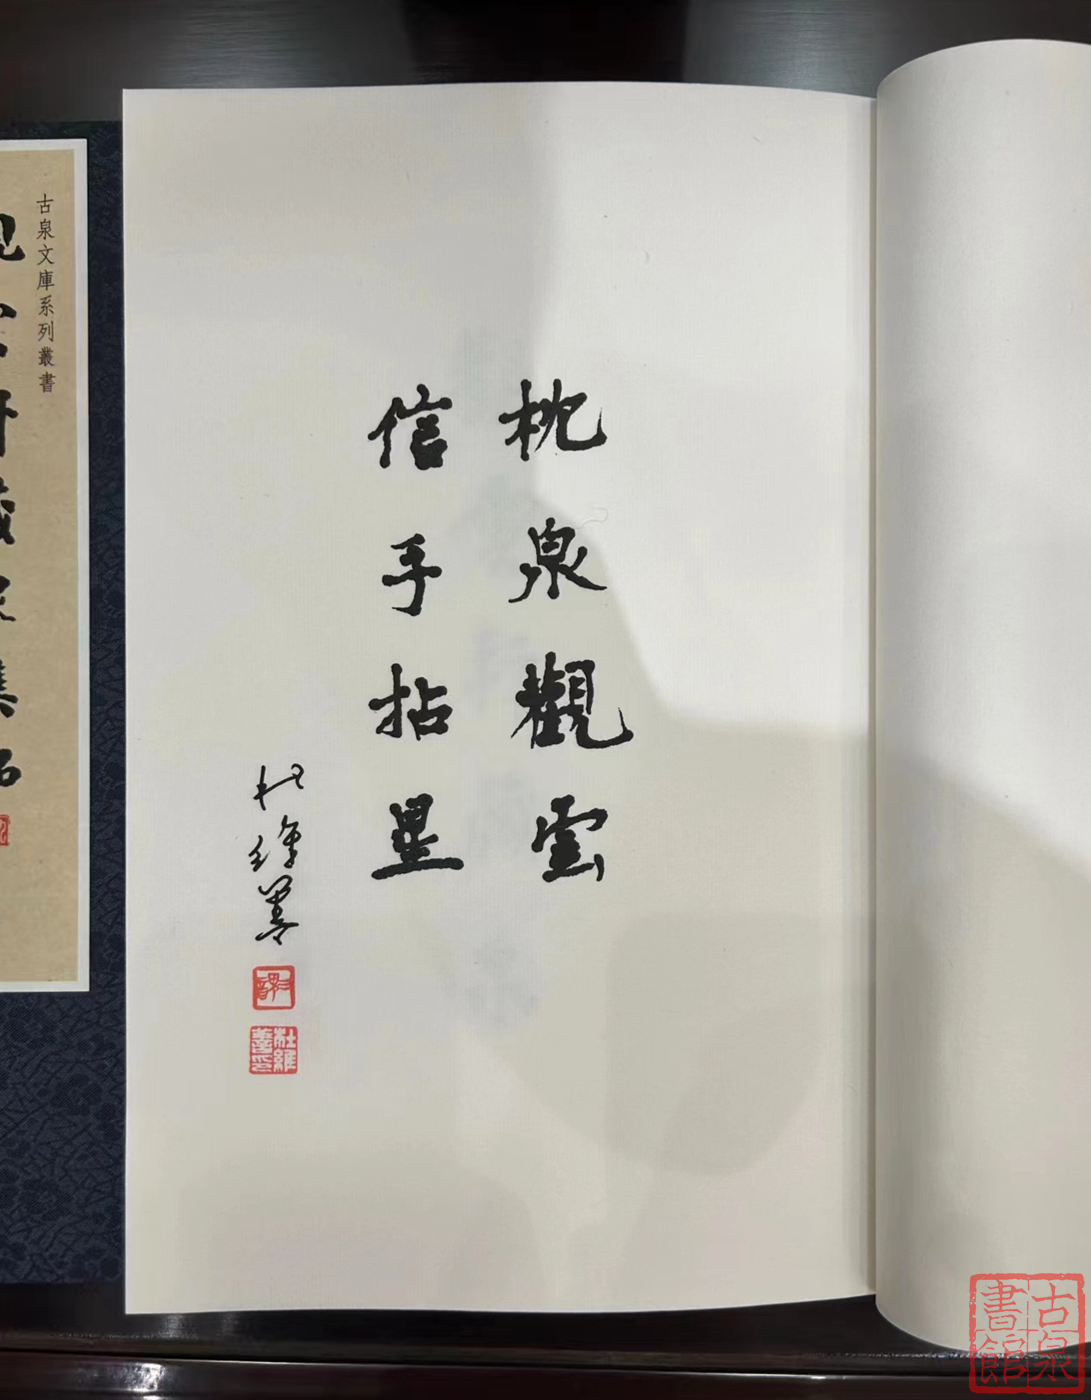 枕泉觀雲
信手拈星
杜維善
杜維善印
古泉文庫系列叢書
古泉書館